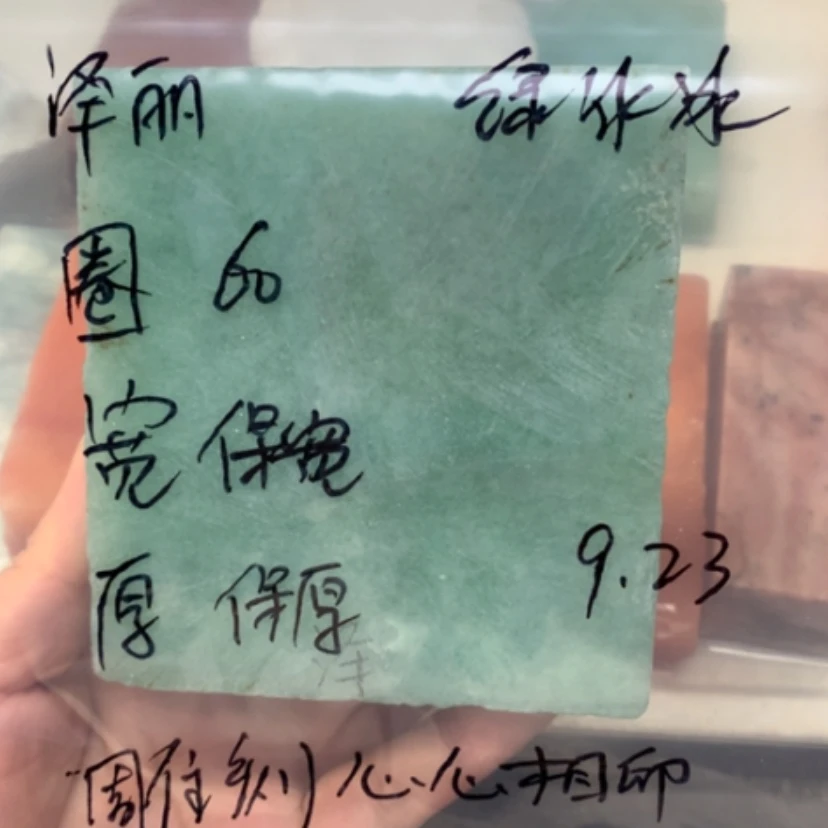 泽丽 绿冰冰
圈 60
宽 保宽
厚 保厚
9.23
心心相印